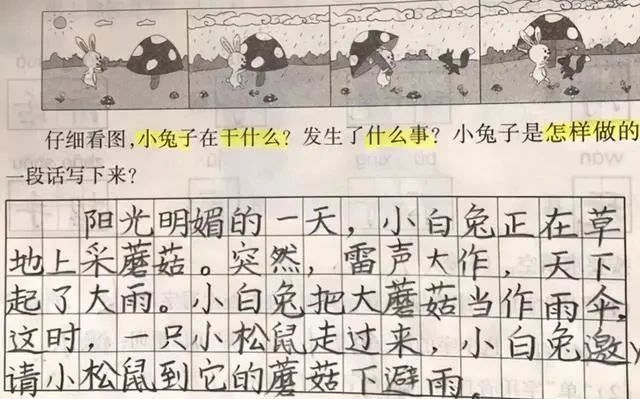 仔细看图,小兔子在干什么?发生了什么事?小兔子是怎样做的
一段话写下来?
阳光明媚的一天,小白兔正在草
地上采蘑菇。突然,雷声大作,天下
起了大雨。小白兔把大蘑菇当作雨伞,
这时,一只小松鼠走过来,小白兔邀
请小松鼠到它的蘑菇下避雨。